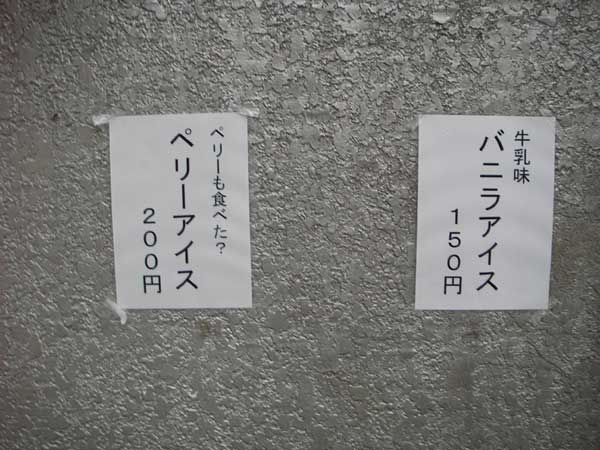 ペリーも食べた?
ペリーアイス
200円
牛乳味
バニラアイス
150円